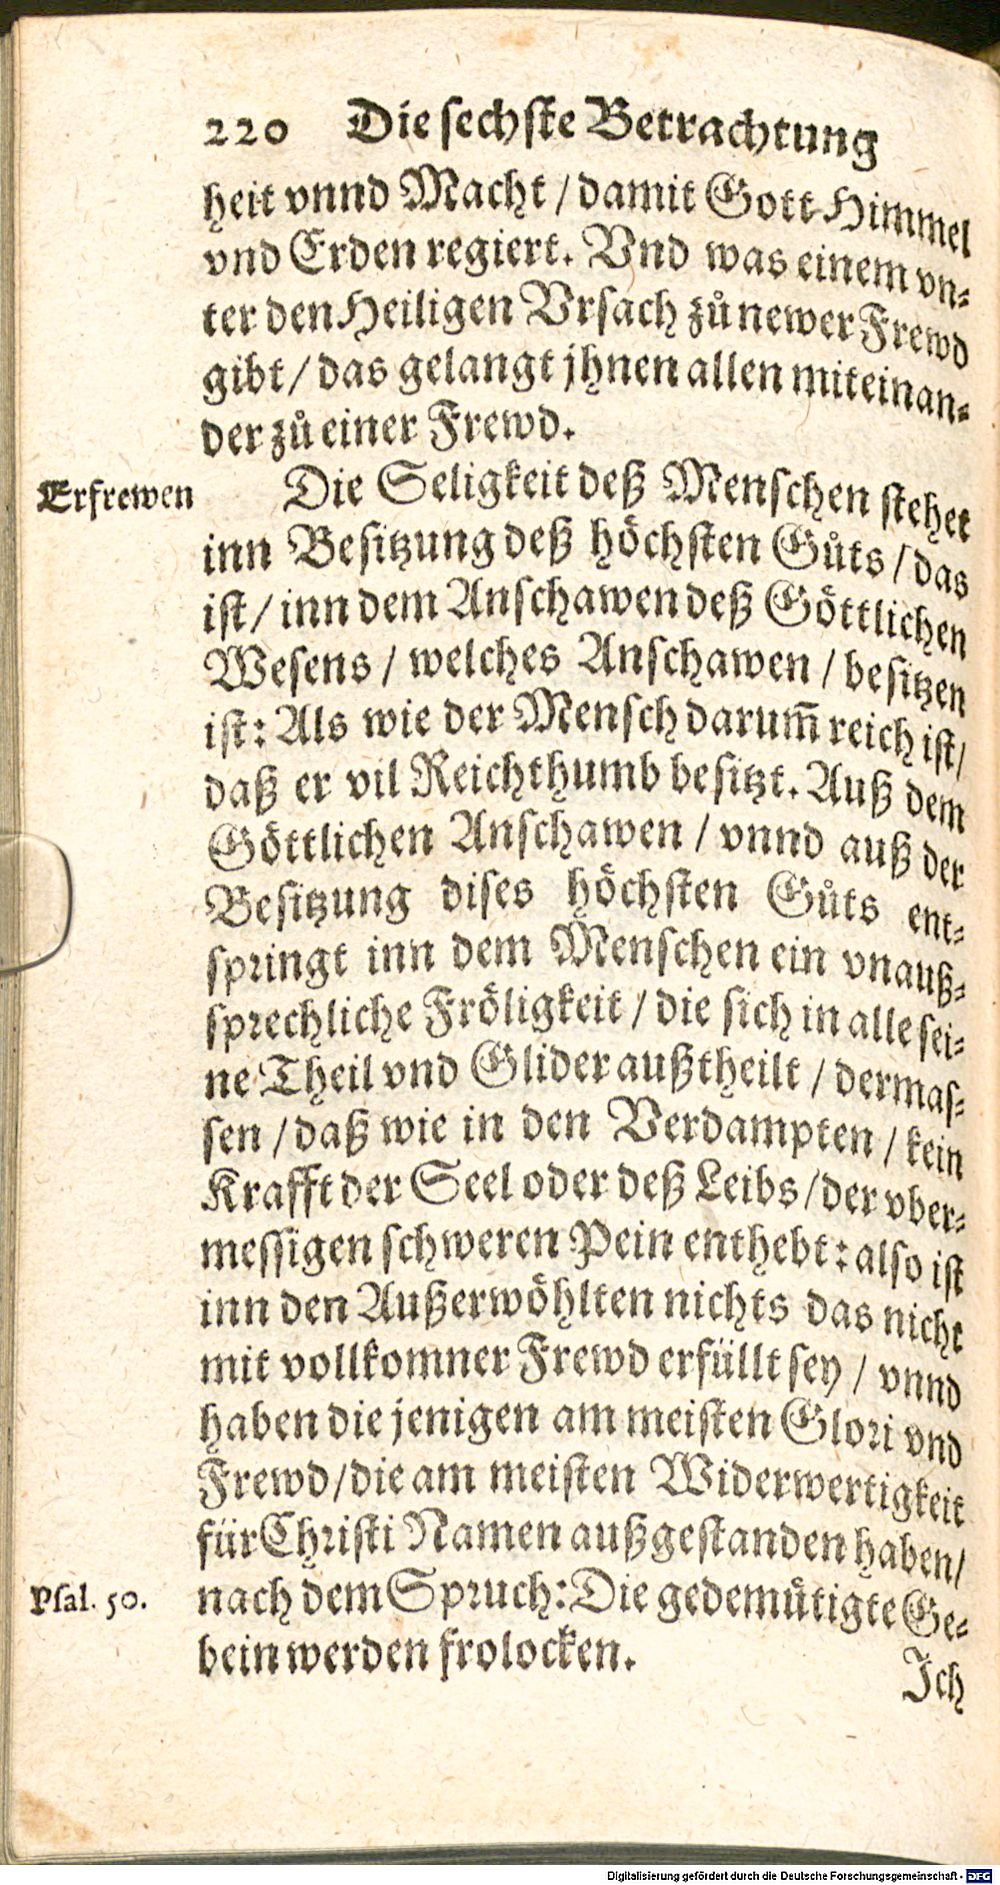 220 Die sechste Betrachtung
heit vnnd Macht / damit Gott Himmel
vnd Erden regiert. Vnd was einem vn-
ter den Heiligen Vrsach zů newer Frewd
gibt / das gelangt jhnen allen miteinan-
der zů einer Frewd.
Erfrewen
Die Seligkeit deß Menschen stehet
inn Besitzung deß höchsten Gůts / das
ist / inn dem Anschawen deß Göttlichen
Wesens / welches Anschawen / besitzen
ist: Als wie der Mensch darum̄ reich ist /
daß er vil Reichthumb besitzt. Auß dem
Göttlichen Anschawen / vnnd auß der
Besitzung dises höchsten Gůts ent-
springt inn dem Menschen ein vnauß-
sprechliche Fröligkeit / die sich in alle sei-
ne Theil vnd Glider außtheilt / dermas-
sen / daß wie in den Verdampten / kein
Krafft der Seel oder deß Leibs / der vber-
messigen schweren Pein enthebt: also ist
inn den Außerwöhlten nichts das nicht
mit vollkomner Frewd erfüllt sey / vnnd
haben die jenigen am meisten Glori vnd
Frewd / die am meisten Widerwertigkeit
für Christi Namen außgestanden haben /
Psal. 50.
nach dem Spruch: Die gedemütigte Ge-
bein werden frolocken.
Ich
Digitalisierung gefördert durch die Deutsche Forschungsgemeinschaft - DFG